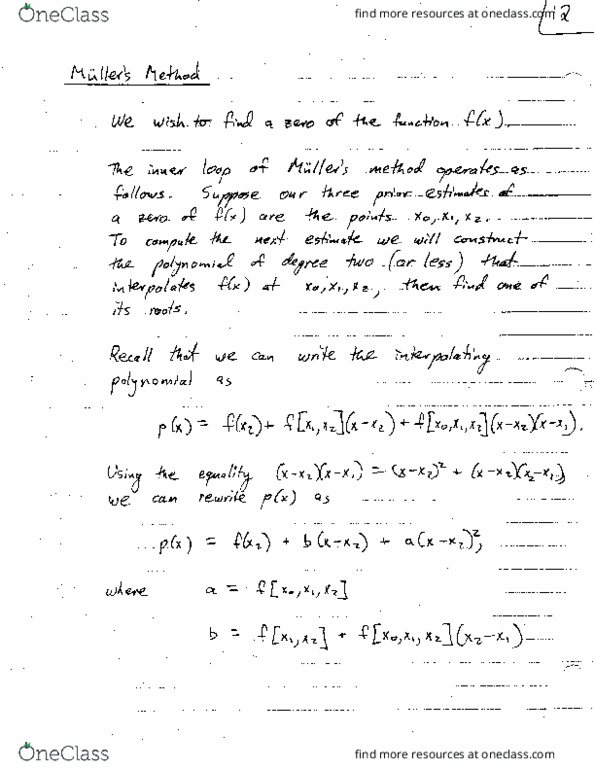 OneClass
find more resources at oneclass.com
12
Müller's Method
We wish to find a zero of the function f(x).
The inner loop of Müller's method operates as
follows. Suppose our three prior estimates of
a zero of f(x) are the points x₀, x₁, x₂.
To compute the next estimate we will construct
the polynomial of degree two (or less) that
interpolates f(x) at x₀, x₁, x₂, then find one of
its roots.
Recall that we can write the interpolating
polynomial as
p(x) = f(x₂) + f[x₁,x₂](x-x₂) + f[x₀,x₁,x₂](x-x₂)(x-x₁).
Using the equality (x-x₂)(x-x₁) = (x-x₂)² + (x-x₂)(x₂-x₁)
we can rewrite p(x) as
p(x) = f(x₂) + b(x-x₂) + a(x-x₂)²,
where a = f[x₀,x₁,x₂]
b = f[x₁,x₂] + f[x₀,x₁,x₂](x₂-x₁)
OneClass
find more resources at oneclass.com